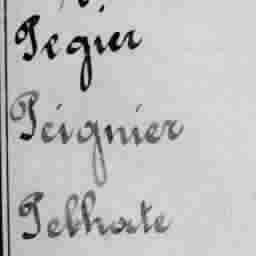 Pegier
Peignier
Pelhate